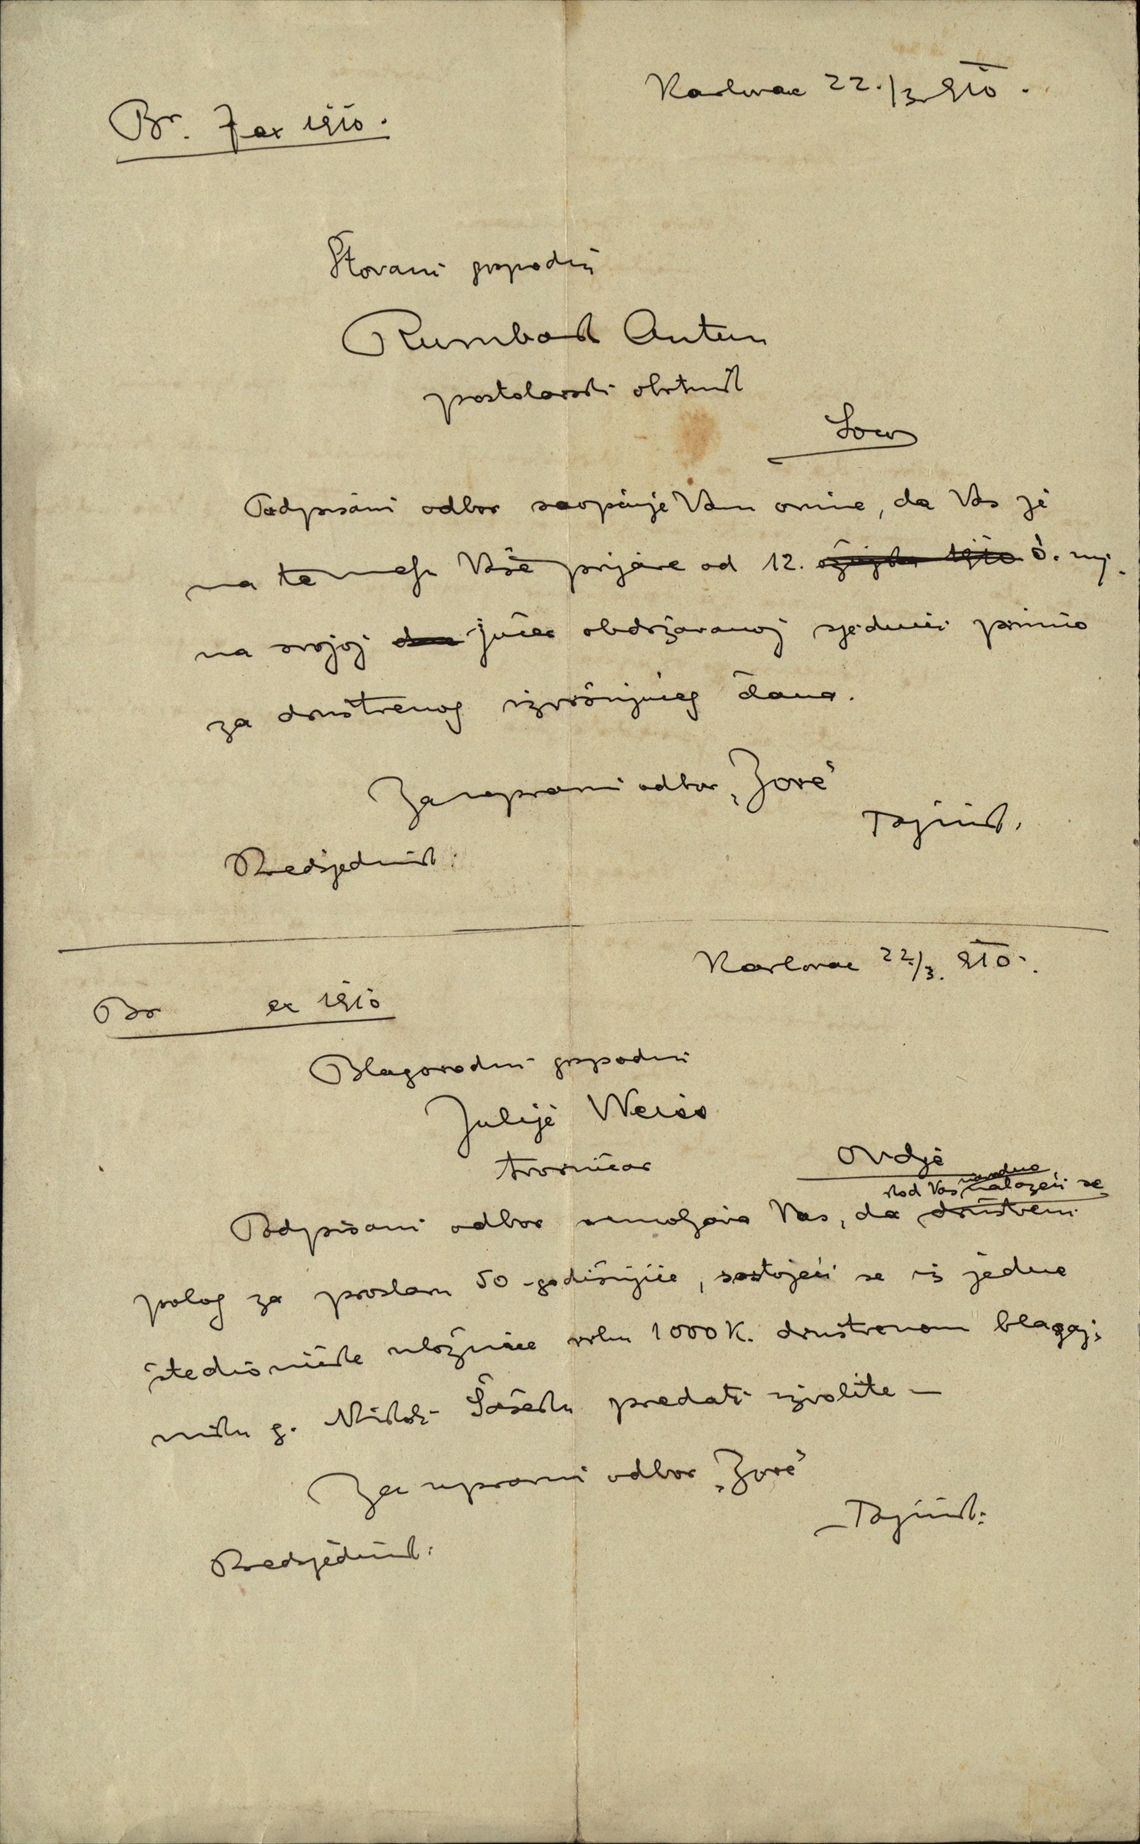 Karlovac 22./3. 910.
Br. 7 ex 1910.
Štovani gospodin
Rumbak Antun
postolarski obrtnik
Podpisani odbor saopćuje Vam ovime, da Vas je
na temelju Vaše prijave od 12. ožujka 1910 o. mj.
na svojoj jučer obdržavanoj sjednici primio
za društvenog izvršujućeg člana.
Za upravni odbor „Zore"
Tajnik.
Predsjednik:
Karlovac 22/3. 910.
Br ex 1910
Blagorodni gospodin
Julije Weiss
tvorničar
Ovdje
kod Vas nalazeći se
Podpisani odbor umoljava Vas, da društveni
polog za proslavu 50-godišnjice, sastojeći se iz jedne
štedioničke uložnice vrhu 1000 K. društvenom blagaj-
niku g. Nikoli Šašeku predati izvolite –
Za upravni odbor „Zore"
Tajnik:
Predsjednik: